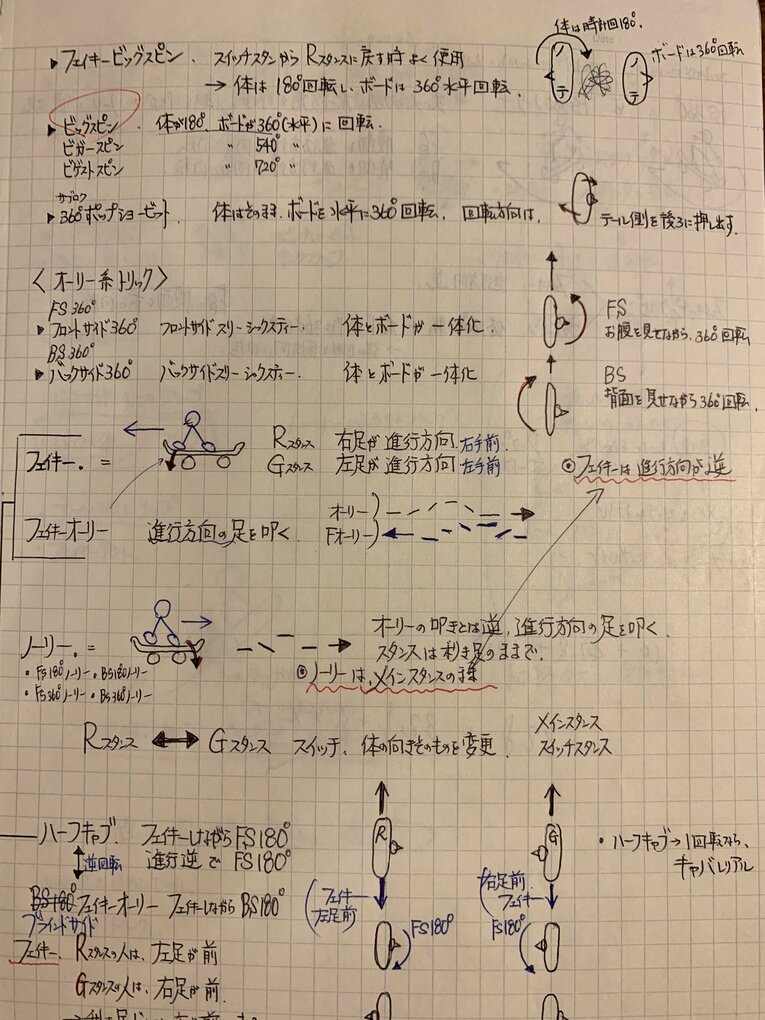 ▶ フェイキービッグスピン. スイッチスタンから Rスタンスに戻す時よく使用
→ 体は180°回転し、ボードは360°水平回転.
体は時計回180°.
ボードは360°回転
ノ
テ
ノ
テ
▶ ビッグスピン. 体が180°. ボードが360°(水平)に回転.
ビガースピン 〃 540° 〃
ビゲストスピン 〃 720° 〃
サブロク
▶ 360°ポップショービット. 体はそのまま. ボードを水平に360°回転. 回転方向は.
テール側を後ろに押し出す.
〈オーリー系トリック〉
FS 360°
▶ フロントサイド360° フロントサイドスリーシックスティー. 体とボードが一体化
BS 360°
▶ バックサイド360° バックサイドスリーシックスティー. 体とボードが一体化
FS
お腹を見せながら、360°回転
BS
背面を見せながら360°回転.
フェイキー. =
Rスタンス 右足が進行方向. 右手前.
Gスタンス 左足が進行方向 左手前
◎フェイキーは進行方向が逆
フェイキーオーリー 進行方向の足を叩く.
オーリー)
Fオーリー)
ノーリー. =
・FS180°ノーリー ・BS180°ノーリー
・FS360°ノーリー ・BS360°ノーリー
オーリーの叩きとは逆, 進行方向の足を叩く.
スタンスは利き足のままで.
◎ノーリーは、メインスタンスのまま
Rスタンス ⟷ Gスタンス スイッチ、体の向きそのものを変更.
メインスタンス
スイッチスタンス
ハーフキャブ. フェイキーしながらFS180°
逆回転 進行逆でFS180°
BS180° フェイキーオーリー フェイキーしながらBS180°
ブラインドサイド
フェイキー. Rスタンスの人は、左足が前
Gスタンスの人は、右足が前.
R
フェイキー
左足前
FS180°
G
右足前.
フェイキー
FS180°
・ハーフキャブ→1回転なら、
キャバレリアル